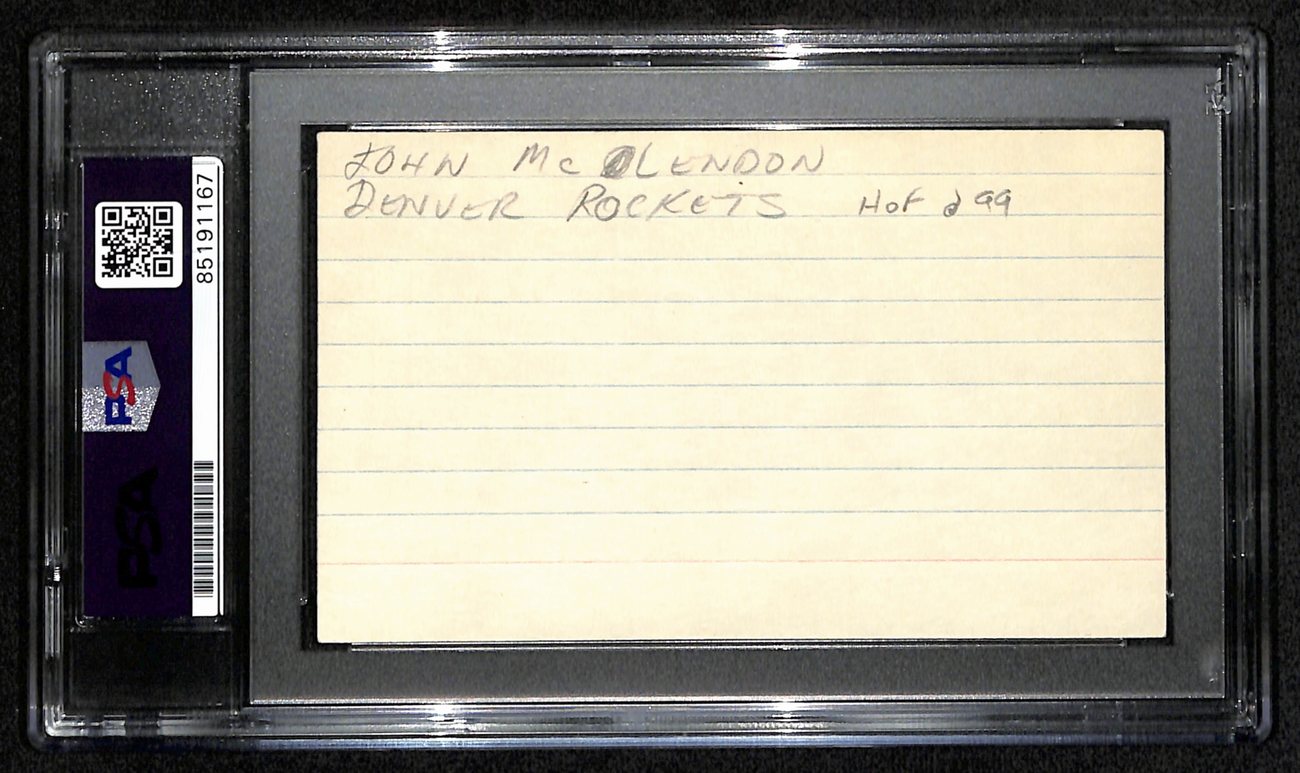 JOHN McCLENDON
DENVER ROCKETS HOF d 99
85191167
PSA
PSA